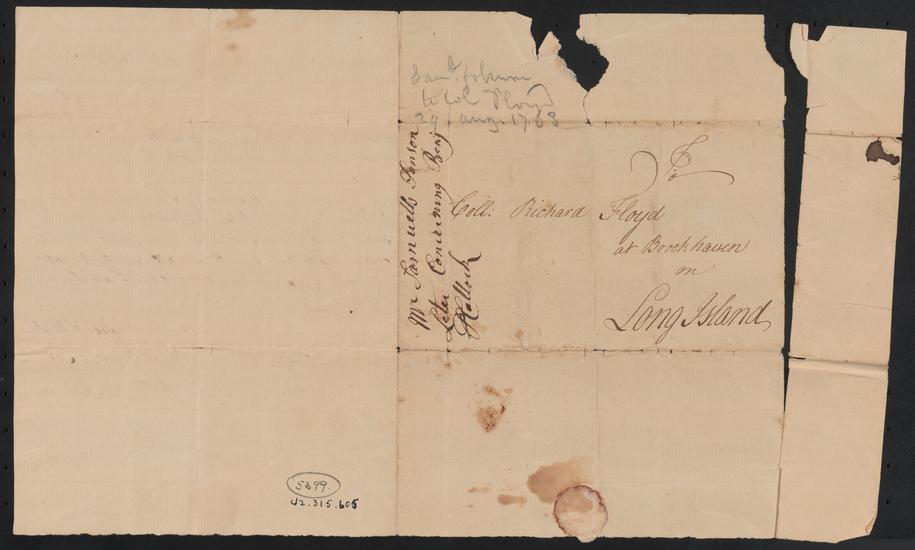 Sam.l Johnson
to Col Floyd
29 aug. 1763
To
Coll: Richard Floyd
at Brookhaven
on
Long Island
Mr Samuells Jonson
Leter Concirning Benj
Hallock
5399.
42.315.605